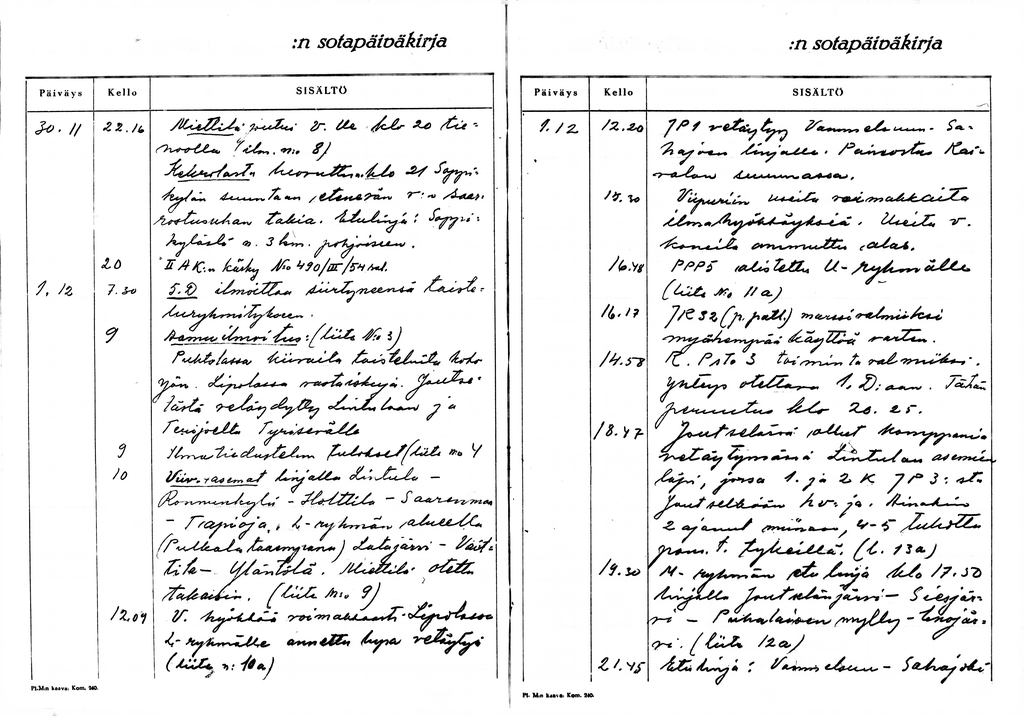 :n sotapäiväkirja
Päiväys Kello SISÄLTÖ
30. 11 22.16 Miettilä joutui v. lle klo 20 tie-
noolla (ilm. n:o 8)
klo 21 Soppi-
kylän suuntaan etenevän v:n saar-
rostusuhan takia. Etulinja: Soppi-
kylästä n. 3 km. pohjoiseen.
20 II AK:n käsky No 490/III/54 sal.
1. 12 7.30 5.D ilmoittaa siirtyneensä taiste-
luryhmitykseen.
9 Aamuilmoitus: (liite No 3)
Puhtulassa kiivaita taisteluita koko
yön. Lipolassa vartioiskuja. Joutse-
lästä vetäydytty Lintulaan ja
Terijoelta Tyrisevälle
9 Ilmatiedustelun tulokset (liite no 4
10 Viiv. asemat linjalla Lintula -
Ronnunkylä - Holttila - Saarenmaa
- Trapioja, L-ryhmän alueella
(Pulkkala taaempana) Latajärvi - Väit-
tilä - Yläntölä. Miettilä otettu
takaisin. (liite n:o 9)
12.04 V. hyökkää voimakkaasti Lipolassa
L-ryhmälle annettu lupa vetäytyä
(liite n: 10a)
Pl.M:n kaava: Kom. 260.
:n sotapäiväkirja
Päiväys Kello SISÄLTÖ
1. 12 12.20 JP1 vetäytyy Vammelsuun - Sa-
hajoen linjalle. Painostus Kai-
valan suunnassa.
15.30 Viipuriin useita voimakkaita
ilmahyökkäyksiä. Useita v.
koneita ammuttu alas.
16.48 PPP5 alistettu U-ryhmälle
(liite No 11a)
16.17 JR32 (p. patl.) marssivalmiiksi
myöhempää käyttöä varten.
14.58 R. Psto 3 toimintavalmiiksi.
Yhteys otettava 1.D:aan. Tähän
perustus klo 20.25.
18.47 Joutselässä ollut komppania
vetäytymässä Lintulan asemien
läpi, jossa 1. ja 2 K JP3:sta
Joutselkään hv: ja. Ainakin
2 ajanut miinaan, 4-5 tuhottu
pans. t. tykeillä. (l. 13a)
19.30 M-ryhmän etulinja klo 17.50
linjalla Joutselänjärvi - Siesjär-
vi - Puhalaisen mylly - Linojär-
vi. (liite 12a)
21.45 Etulinja: Vammelsuu - Sahajoki
Pl. M:n kaava: Kom. 260.